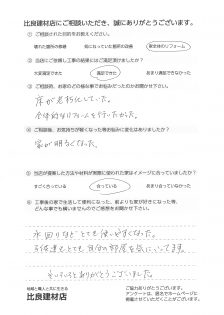 比良建材店にご相談いただき、誠にありがとうございます。
① ご相談された目的をお教えください。
壊れた箇所の修繕　気になっていた箇所の改善　家全体のリフォーム
② 当店にご依頼した工事の結果にはご満足頂けましたか？
大変満足できた　満足できた　あまり満足できなかった
③ ご相談時、お家のどの様な事でお悩みだったのかお聞かせ下さい。
床が老朽化していた。
全体的なリフォームを行いたかった。
④ ご相談後、お気持ちが軽くなった等お悩みに変化はありましたか？
家が明るくなった。
⑤ 当店が提案した方法や材料が実際に使われた家はイメージに合っていましたか？
すごく合っている　合っている　あまり合っていなかった
⑥ 工事後の家で生活して便利になった、前よりも家が好きになった等、
どんな事でも構いませんのでご感想をお聞かせ下さい。
水回りなどとても使いやすくなった。
子供達もとても自分の部屋を気にいってます。
ありがとうございました。
地域と職人と共に生きる
比良建材店
ご協力ありがとうございます。
アンケートは、匿名でホームページに
掲載させていただくことがございます。